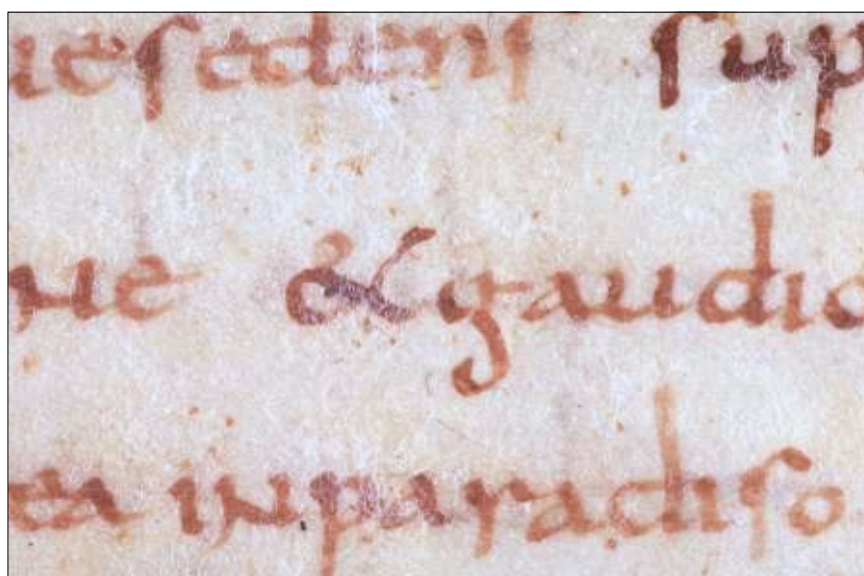 uesedens sup
ne & gaudio
ta inparadiso